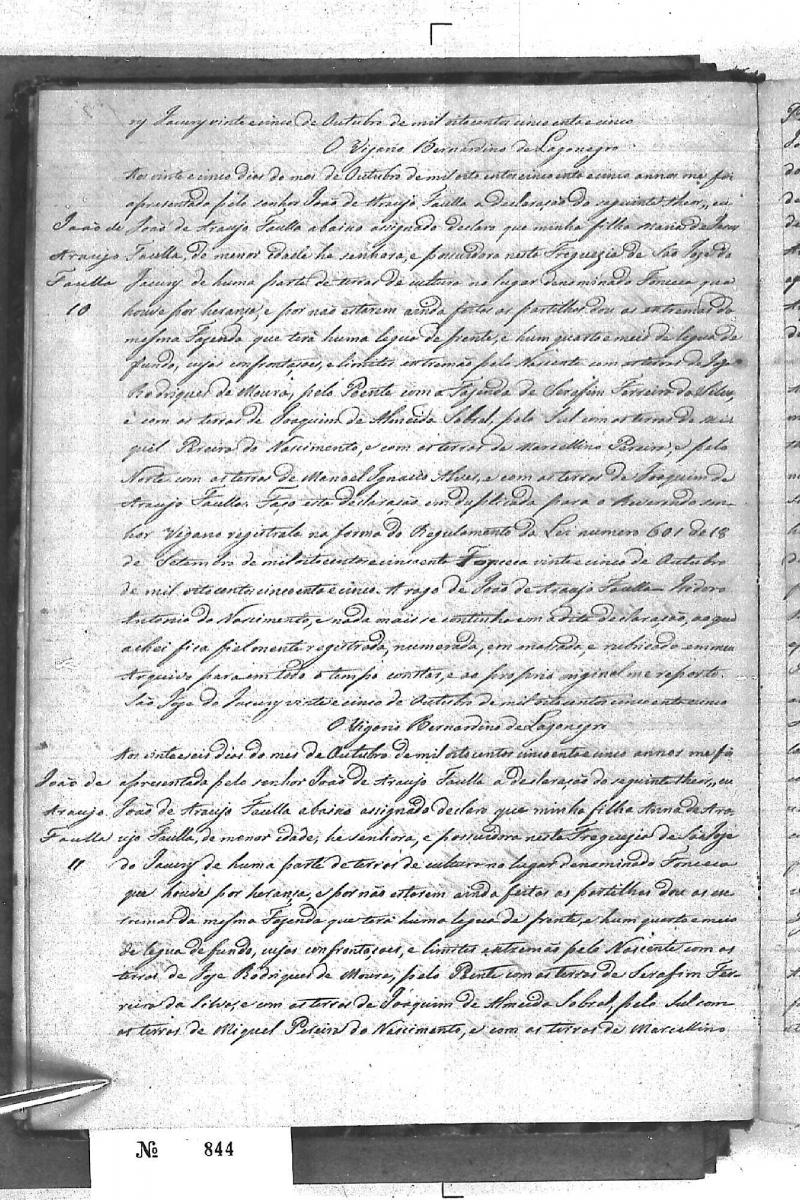 ry Jacury vinte e cinco de Outubro de mil oito centos cincoenta e cinco
O Vigario Bernardino de Lagonegro
Aos vinte e cinco dias do mes de Outubro de mil oito centos cincoenta e cinco annos me foi
apresentada pelo senhor João de Araujo Faulla a declaração do seguinte theor,, eu
João de Araujo Faulla abaixo assignado declaro que minha filha Maria de
João de
Araujo
Faulla
10
Faulla, de menor idade he senhora, e possuidora nesta Freguezia de São Joze do
Jacury de huma parte de terras de cultura no lugar denominado Fonceca que
houve por herança, e por não estarem ainda feitas as partilhas dou as extremas da
mesma Fazenda que terá huma legua de frente, e hum quarto e meio de legua de
fundo, cujas confrontasoes, e limites extremão pelo Nascente com as terras de Joze
Rodrigues de Moura, pelo Poente com a Fazenda de Serafim Ferreira da Silva,
e com as terras de Joaquim de Almeida Sobral, pelo Sul com as terras de Mi-
guel Pereira do Nascimento, e com as terras de Marcellino Pereira, e pelo
Norte com as terras de Manoel Ignacio Alves, e com as terras de Joaquim de
Araujo Faulla. Faço esta declaração em duplicada para o Reverendo sen-
hor Vigario registrala na forma do Regulamento da Lei numero 601 de 18
de Setembro de mil oito centos e cincoenta Fonceca vinte e cinco de Outubro
de mil oito centos cincoenta e cinco. A rogo de João de Araujo Faulla Izidoro
Antonio do Nascimento, e nada mais se continha em a dita declaração, ao que
achei fica fielmente registrada, numerada, em massada e rubricada em meu
Arquivo para em todo o tempo constar, e ao proprio original me reporto.
São Joze do Jacury vinte e cinco de Outubro de mil oito centos cincoenta e cinco
O Vigario Bernardino de Lagonegro
Aos vinte e seis dias do mes de Outubro de mil oito centos cincoenta e cinco annos me foi
apresentada pelo senhor João de Araujo Faulla a declaração do seguinte theor,, eu
João de Araujo Faulla abaixo assignado declaro que minha filha Anna de Ara-
João de
Araujo
Faulla
11
ujo Faulla, de menor idade, he senhora, e possuidora nesta Freguezia de São Joze
do Jacury de huma parte de terras de cultura no lugar denominado Fonceca
que houve por herança, e por não estarem ainda feitas as partilhas dou as ex-
tremas da mesma Fazenda que terá huma legua de frente, e hum quarto e meio
de legua de fundo, cujas confrontasoes, e limites extremão pelo Nascente com as
terras de Joze Rodrigues de Moura, pelo Poente com as terras de Serafim Fer-
reira da Silva, e com as terras de Joaquim de Almeida Sobral, pelo Sul com
as terras de Miguel Pereira do Nascimento, e com as terras de Marcellino
№ 844